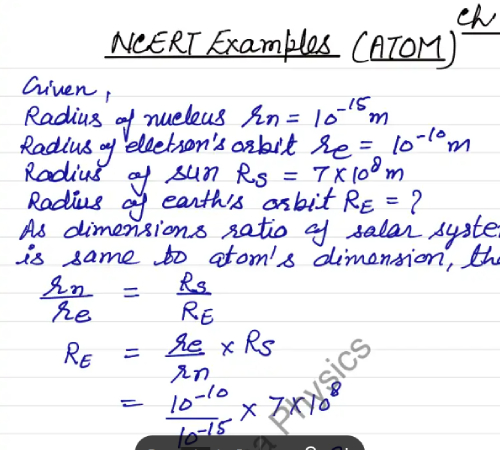 Ch
NCERT Examples (ATOM)
Given,
Radius of nucleus rn = 10⁻¹⁵ m
Radius of electron's orbit re = 10⁻¹⁰ m
Radius of sun Rs = 7 × 10⁸ m
Radius of earth's orbit RE = ?
As dimensions ratio of solar syste
is same to atom's dimension, the
rn/re = Rs/RE
RE = re/rn × Rs
= 10⁻¹⁰/10⁻¹⁵ × 7 × 10⁸
Physics